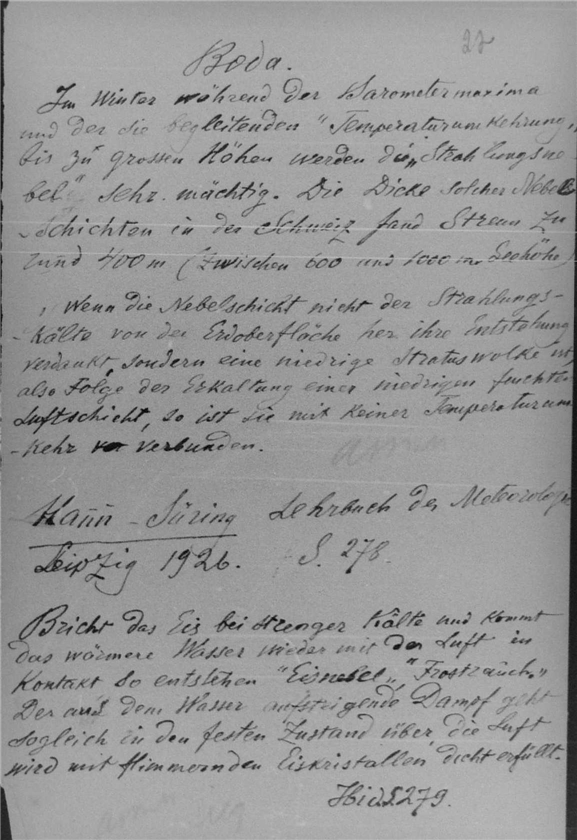 22
Boda.
Im Winter während der Barometermaxima
und der sie begleitenden "Temperaturumkehrung"
bis zu grossen Höhen werden die „Strahlungsne-
bel" sehr mächtig. Die Dicke solcher Nebel
-Schichten in der Schweiz fand Streun zu
rund 400 m (zwischen 600 und 1000 m Seehöhe)
Wenn die Nebelschicht nicht der Strahlungs-
-Kälte von der Erdoberfläche her ihre Entstehung
verdankt, sondern eine niedrige Stratuswolke ist
also Folge der Erkaltung einer niedrigen feuchten
Luftschicht, so ist sie mit keiner Temperaturum
-kehr verbunden.
Hann - Süring Lehrbuch der Meteorologie
Leipzig 1926. S. 278.
Bricht das Eis bei strenger Kälte und kommt
das wärmere Wasser wieder mit der Luft in
Kontakt so entstehen "Eisnebel„ "Frostrauch„
Der aus dem Wasser aufsteigende Dampf geht
sogleich in den festen Zustand über, die Luft
wird mit flimmernden Eiskristallen dicht erfüllt.
Ibid S. 279.